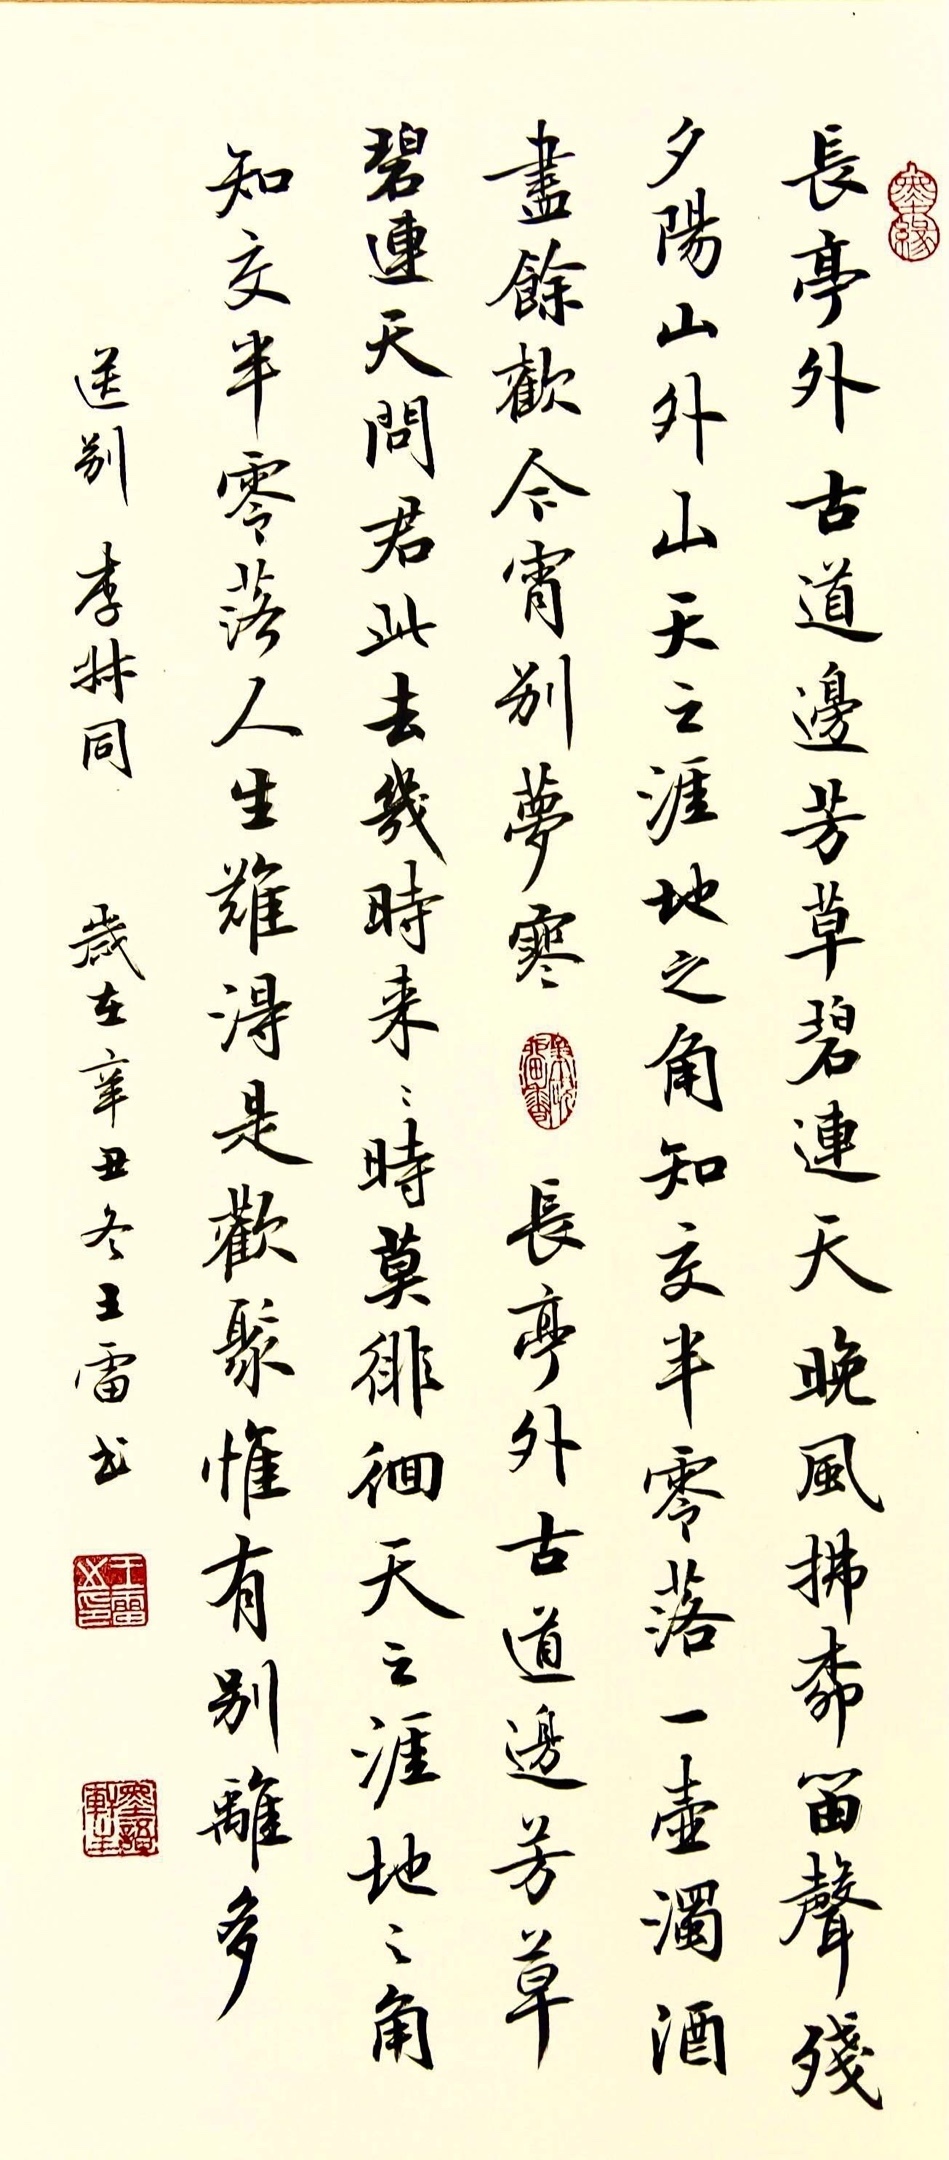 墨緣
長亭外古道邊芳草碧連天晚風拂柳笛聲殘
夕陽山外山天之涯地之角知交半零落一壺濁酒
盡餘歡今宵别夢寒 長亭外古道邊芳草
碧連天問君此去幾時来〻時莫徘徊天之涯地之角
知交半零落人生難得是歡聚惟有别離多
送别 李叔同 歲在辛丑冬王雷书
王雷之印
墨語軒主